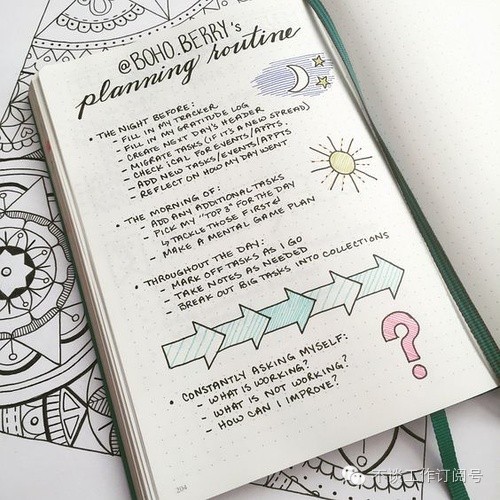 @BOHO.BERRY's
planning routine
• THE NIGHT BEFORE:
- FILL IN MY TRACKER
- FILL IN MY GRATITUDE LOG
- CREATE NEXT DAY'S HEADER
- MIGRATE TASKS (IF IT'S A NEW SPREAD)
- CHECK iCAL FOR EVENTS/APPTS
- ADD NEW TASKS/EVENTS/APPTS
- REFLECT ON HOW MY DAY WENT
• THE MORNING OF:
- ADD ANY ADDITIONAL TASKS
- PICK MY "TOP 3" FOR THE DAY
↳ TACKLE THOSE FIRST!
- MAKE A MENTAL GAME PLAN
• THROUGHOUT THE DAY:
- MARK OFF TASKS AS I GO
- TAKE NOTES AS NEEDED
- BREAK OUT BIG TASKS INTO COLLECTIONS
• CONSTANTLY ASKING MYSELF:
- WHAT IS WORKING?
- WHAT IS NOT WORKING?
- HOW CAN I IMPROVE?
?
204
不谈工作订阅号